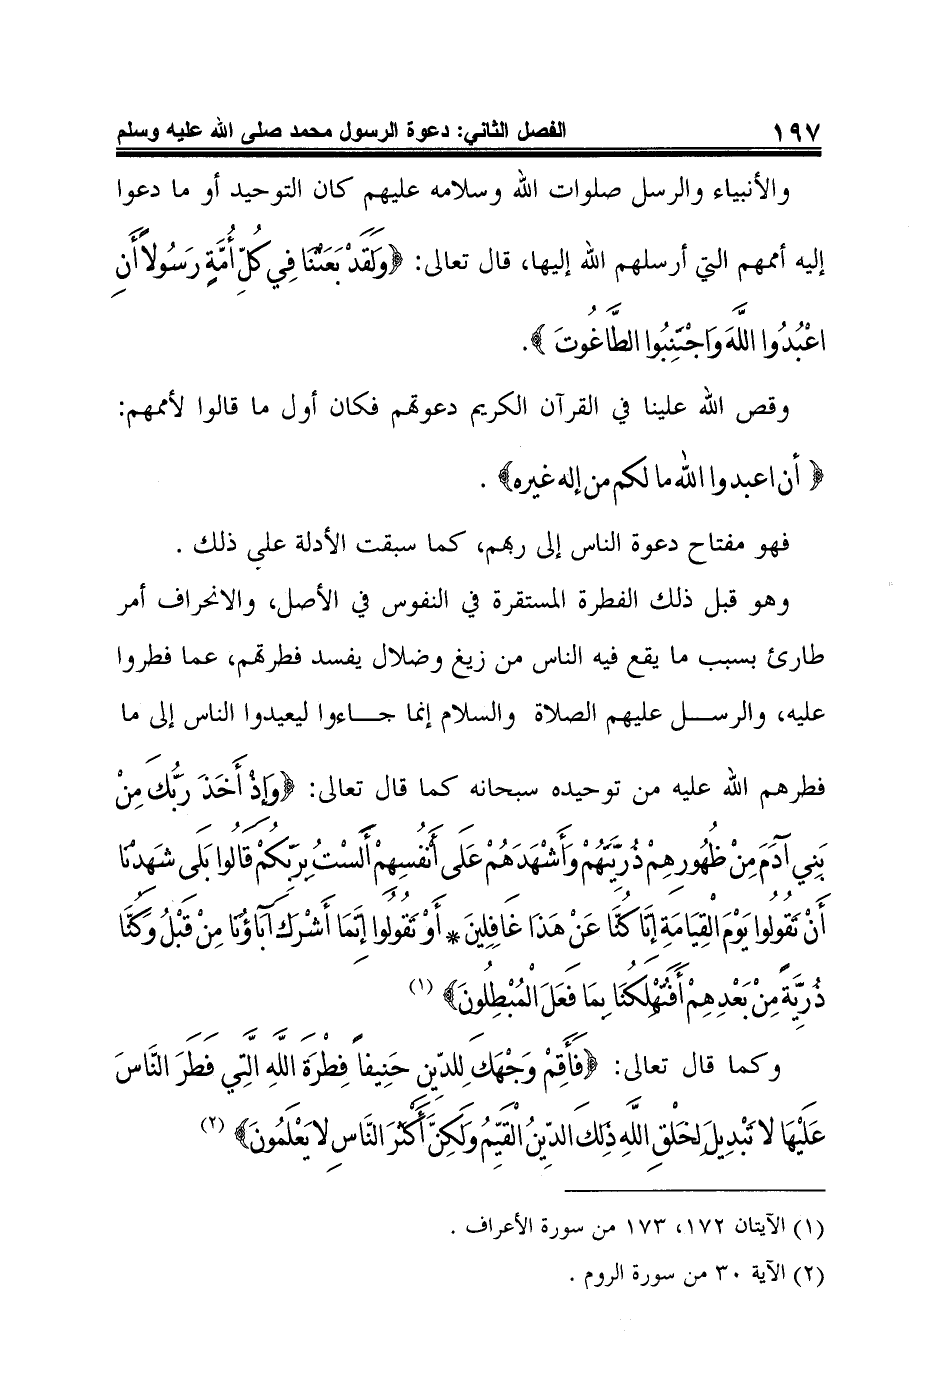 ١٩٧ الفصل الثاني: دعوة الرسول محمد صلى الله عليه وسلم
والأنبياء والرسل صلوات الله وسلامه عليهم كان التوحيد أو ما دعوا
إليه أممهم التي أرسلهم الله إليها، قال تعالى: ﴿وَلَقَدْ بَعَثْنَا فِي كُلِّ أُمَّةٍ رَسُولاً أَنِ
اعْبُدُوا اللَّهَ وَاجْتَنِبُوا الطَّاغُوتَ﴾.
وقص الله علينا في القرآن الكريم دعوتهم فكان أول ما قالوا لأممهم:
﴿ أن اعبدوا الله ما لكم من إله غيره﴾ .
فهو مفتاح دعوة الناس إلى ربهم، كما سبقت الأدلة على ذلك .
وهو قبل ذلك الفطرة المستقرة في النفوس في الأصل، والانحراف أمر
طارئ بسبب ما يقع فيه الناس من زيغ وضلال يفسد فطرتهم، عما فطروا
عليه، والرســل عليهم الصلاة والسلام إنما جــاءوا ليعيدوا الناس إلى ما
فطرهم الله عليه من توحيده سبحانه كما قال تعالى: ﴿وَإِذْ أَخَذَ رَبُّكَ مِنْ
بَنِي آدَمَ مِنْ ظُهُورِهِمْ ذُرِّيَّتَهُمْ وَأَشْهَدَهُمْ عَلَى أَنْفُسِهِمْ أَلَسْتُ بِرَبِّكُمْ قَالُوا بَلَى شَهِدْنَا
أَنْ تَقُولُوا يَوْمَ الْقِيَامَةِ إِنَّا كُنَّا عَنْ هَذَا غَافِلِينَ * أَوْ تَقُولُوا إِنَّمَا أَشْرَكَ آبَاؤُنَا مِنْ قَبْلُ وَكُنَّا
ذُرِّيَّةً مِنْ بَعْدِهِمْ أَفَتُهْلِكُنَا بِمَا فَعَلَ الْمُبْطِلُونَ﴾ (١)
وكما قال تعالى: ﴿فَأَقِمْ وَجْهَكَ لِلدِّينِ حَنِيفاً فِطْرَةَ اللَّهِ الَّتِي فَطَرَ النَّاسَ
عَلَيْهَا لا تَبْدِيلَ لِخَلْقِ اللَّهِ ذَلِكَ الدِّينُ الْقَيِّمُ وَلَكِنَّ أَكْثَرَ النَّاسِ لا يَعْلَمُونَ﴾ (٢)
(١) الآيتان ١٧٢، ١٧٣ من سورة الأعراف .
(٢) الآية ٣٠ من سورة الروم .